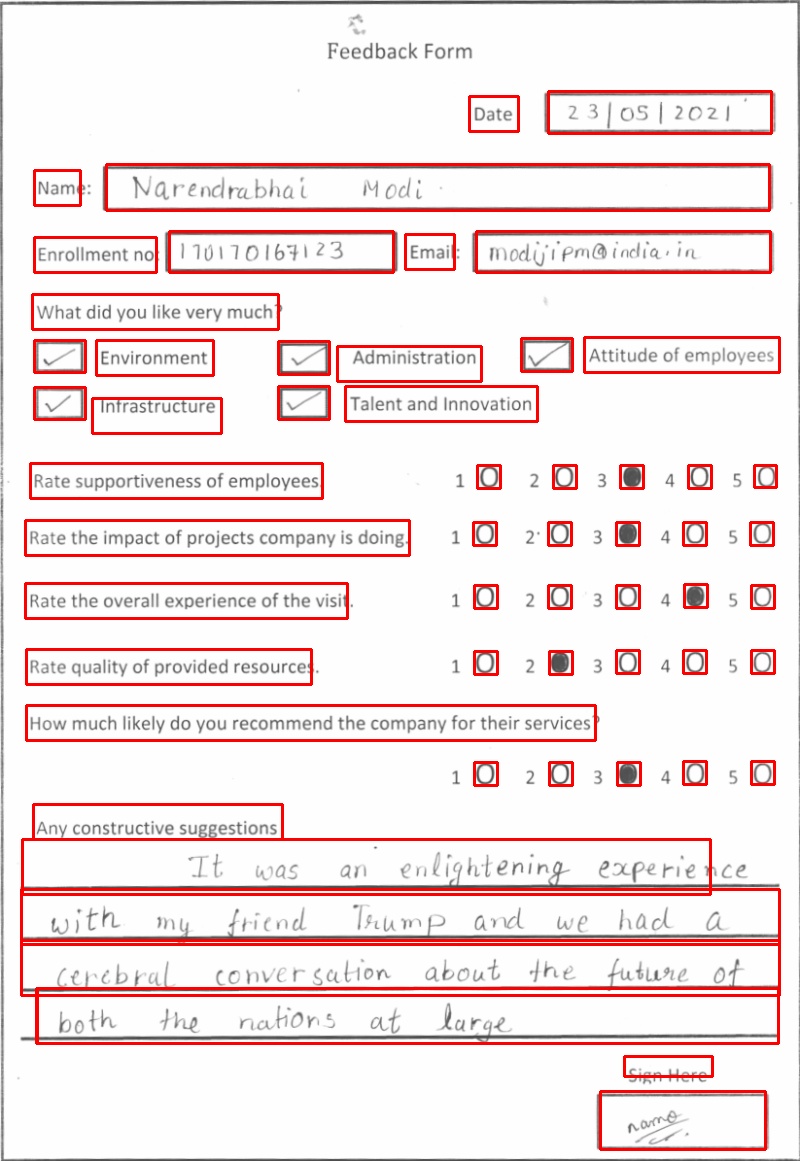 Feedback Form
Date 23/05/2021
Name: Narendrabhai Modi
Enrollment no: 170170167123 Email: modijipm@india.in
What did you like very much?
Environment Administration Attitude of employees
Infrastructure Talent and Innovation
Rate supportiveness of employees 1 2 3 4 5
Rate the impact of projects company is doing. 1 2 3 4 5
Rate the overall experience of the visit. 1 2 3 4 5
Rate quality of provided resources. 1 2 3 4 5
How much likely do you recommend the company for their services?
1 2 3 4 5
Any constructive suggestions
It was an enlightening experience
with my friend Trump and we had a
cerebral conversation about the future of
both the nations at large
Sign Here
namo